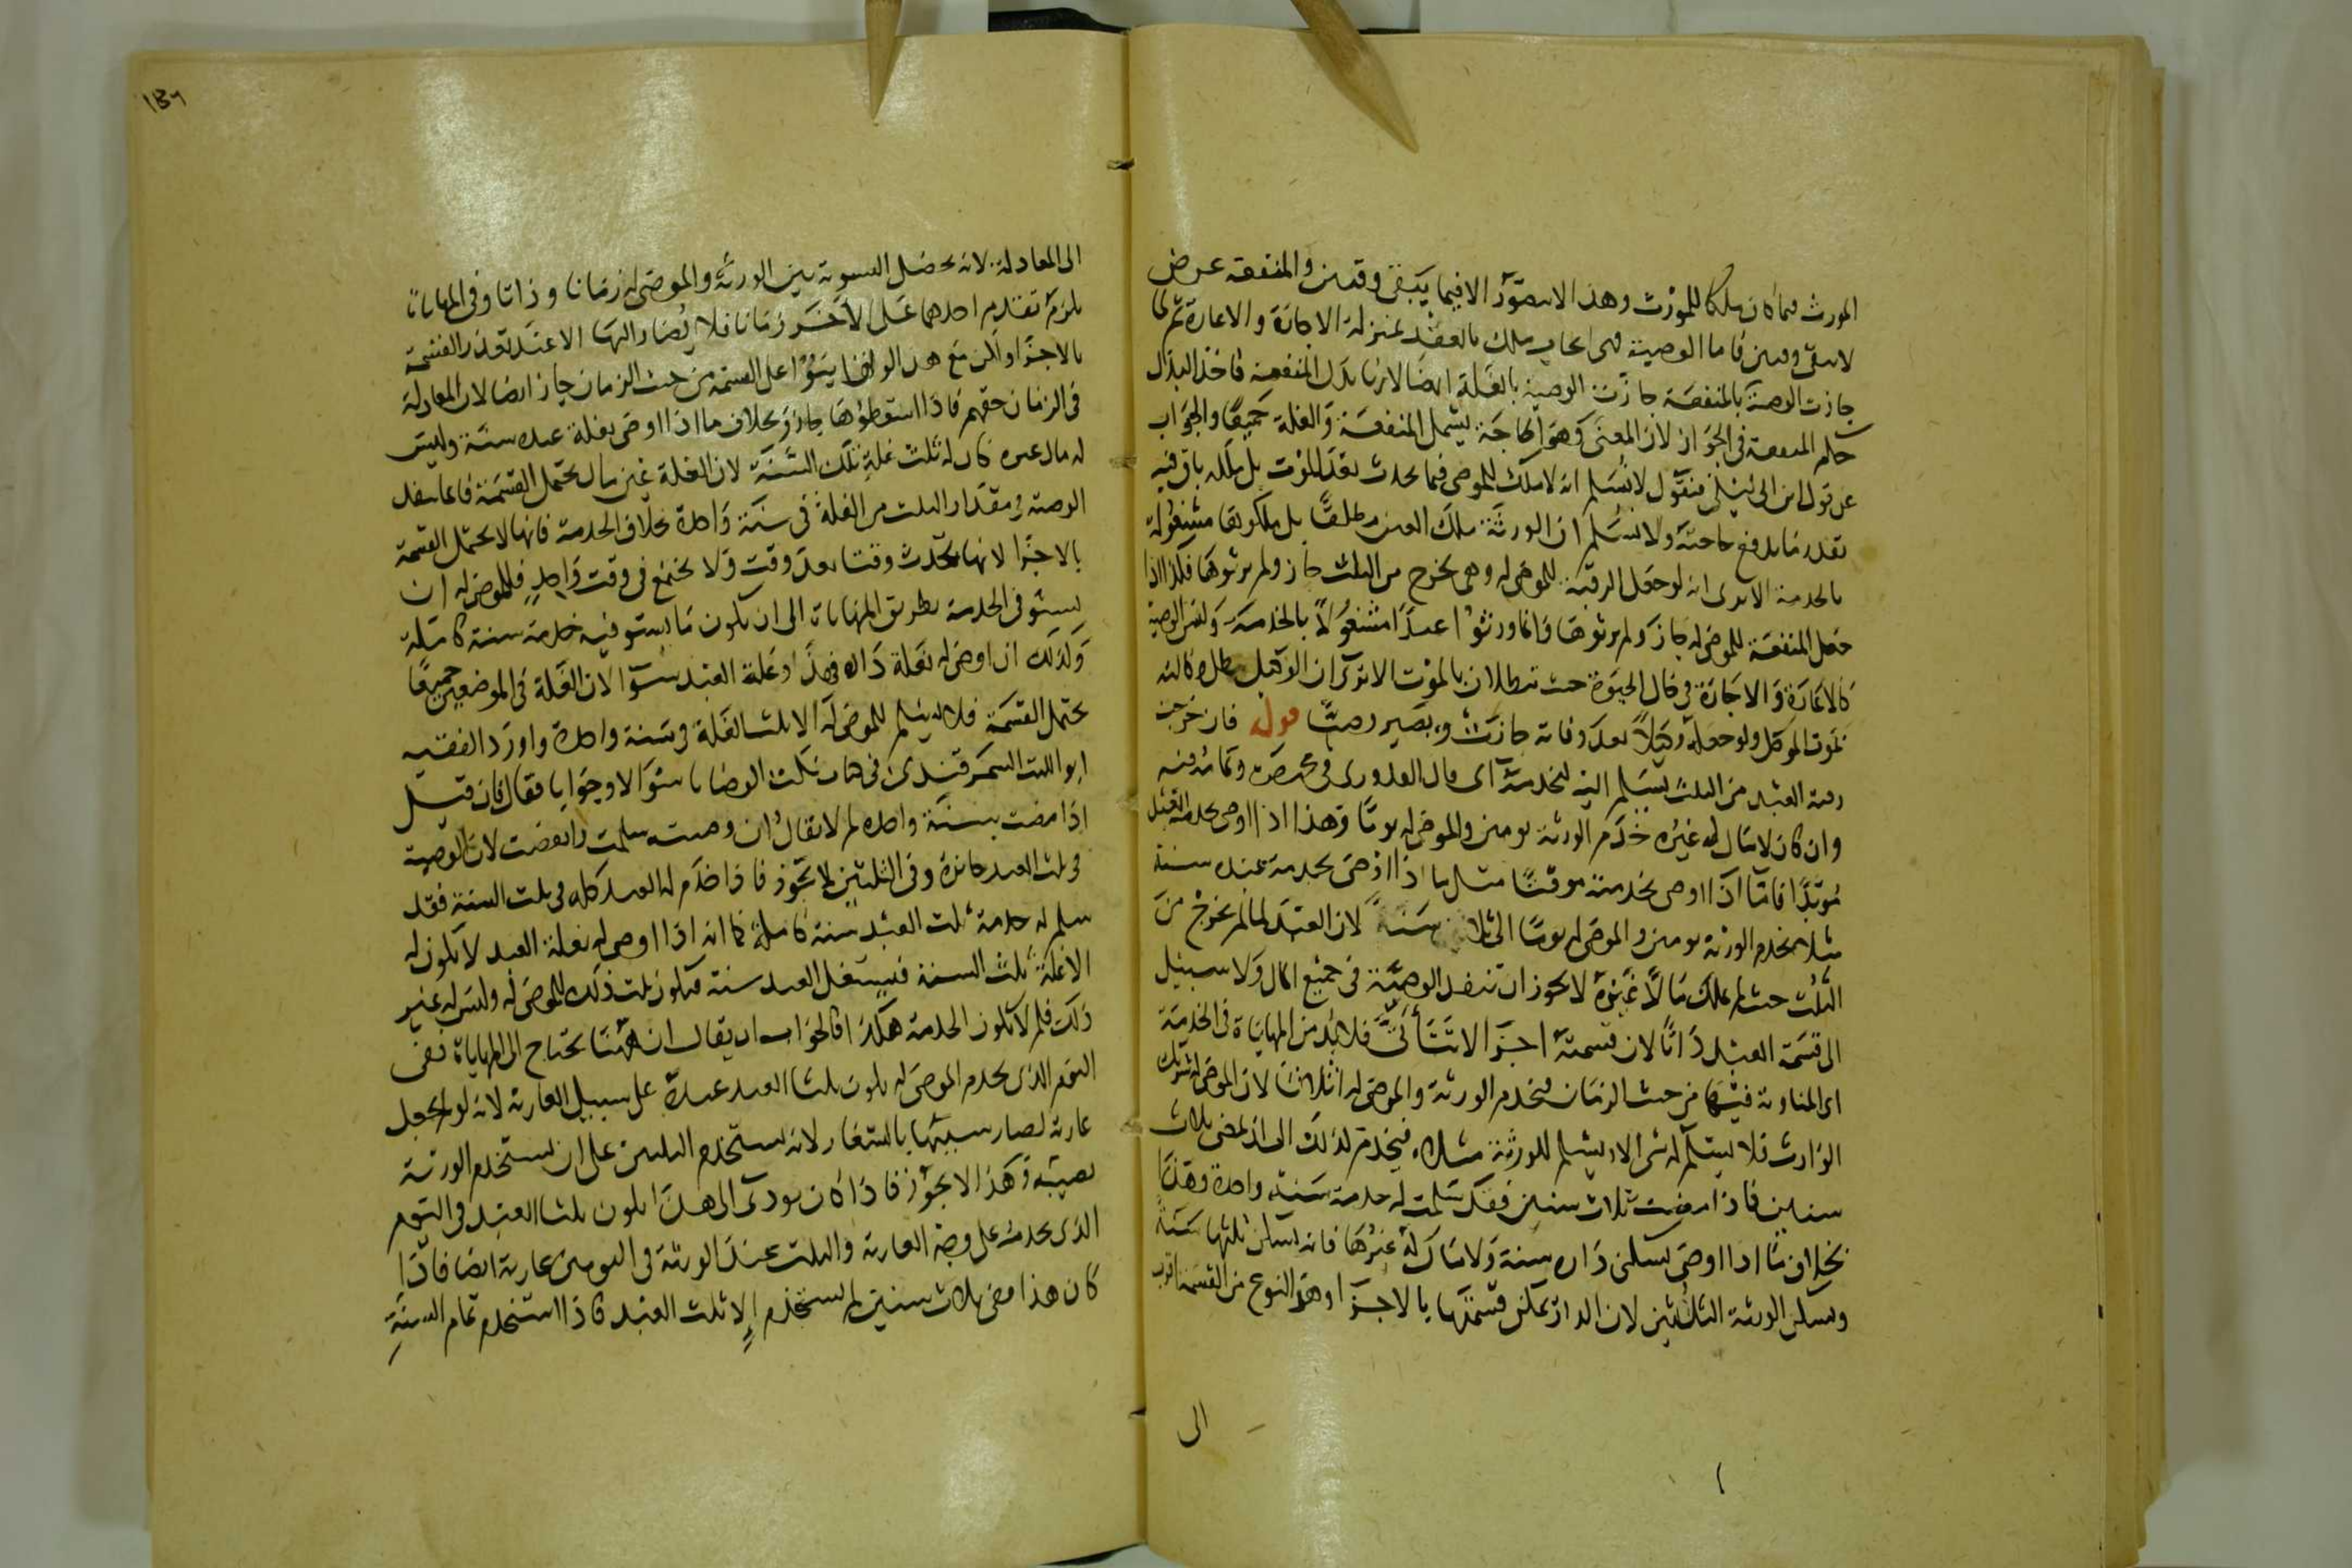 المورث فيما كان ملكا للمورث وهذا لا يتصور الا فيما يبقى وقتين والمنفعة عرض
لا يبقى وقتين فاما الوصية فهى ايجاب ملك بالعقد بمنزلة الاجازة والاعارة ثم لما
جازت الوصية بالمنفعة جازت الوصية بالغلة ايضا لانها بدل المنفعة فاخذ البدل
حكم المنفعة فى الجواز لان المعنى وهو الحاجة يشمل المنفعة والغلة جميعا والجواب
عن قول ابن ابى ليلى فنقول لا نسلم انه لا ملك للموصى فيما يحدث بعد الموت بل ملكه باق فيه
بقدر ما يدفع حاجته ولا نسلم ان الورثة ملك العين مطلقا بل ملكوها مشغولة
بالخدمة الا يرى انه لو جعل الرقبة للموصى له وهى يخرج من الثلث جاز ولم يرثوها فكذا اذا
جعل المنفعة للموصى له جاز ولم يرثوها وانما ورثوا عبدا مشغولا بالخدمة وليس الوصية
كالاعارة والاجارة فى حال الحيوة حيث تبطلان بالموت الا ترى ان الوكيل يبطل وكالته
بموت الموكل ولو جعله وكيلا بعد وفاته جازت ويصير وصيا قوله فان خرجت
رقبة العبد من الثلث يسلم اليه ليخدمه اى قال القدورى فى مختصره وتمامه فيه
وان كان لا مال له غيره خدم الورثة يومين والموصى له يوما وهذا اذا اوصى بخدمة العبد
مؤبدا فاما اذا اوصى بخدمته موقتا مثل ما اذا اوصى بخدمة عبده سنة
مثلا يخدم الورثة يومين والموصى له يوما الى ثلاث سنين لان العبد لما لم يخرج من
الثلث حيث لم يملك مالا غيره لا يجوز ان تنفذ الوصية فى جميع المال ولا سبيل
الى قسمة العبد ذاتا لان قسمته اجزا لا تتأتى فلا بد من المهاياة فى الخدمة
اى المناوبة فيها من حيث الزمان فيخدم الورثة والموصى له اثلاثا لان الموصى له شريك
الوارث فلا يسلم له شى الا يسلم للورثة مثلاه فيخدم لذلك الى ان يمضى ثلاث
سنين فاذا مضت ثلاث سنين فقد سلمت له خدمة سنة واحدة وهذا
بخلاف ما اذا اوصى بسكنى داره سنة ولا مال له غيرها فانه يسكن ثلثها سنة
ويسكن الورثة الثلثين لان الدار يمكن قسمتها بالاجزا وهذا النوع من القسمة اقرب
الى
١٣٦
الى المعادلة لانه يحصل التسوية بين الورثة والموصى له زمانا وذاتا وفى المهاياة
يلزم تقديم احدهما على الاخر زمانا فلا يصار اليها الا عند تعذر القسمة
بالاجزا ولكن مع هذا لو اقتسموا على القسمة من حيث الزمان جاز ايضا لان المعادلة
فى الزمان حقهم فاذا اسقطوها جاز وبخلاف ما اذا اوصى بغلة عبده سنة وليس
له مال غيره كان له ثلث غلة تلك السنة لان الغلة عين مال يحتمل القسمة فانما ينفذ
الوصية فى مقدار الثلث من الغلة فى سنة واحدة بخلاف الخدمة فانها لا يحتمل القسمة
بالاجزا لانها يحدث وقتا بعد وقت ولا يجتمع فى وقت واحد فللموصى له ان
يستوفى الخدمة بطريق المهاياة الى ان يكون ما يستوفيه خدمة سنة كاملة
وكذلك ان اوصى له بغلة داره فهذا وغلة العبد سوا لان الغلة فى الموضعين جميعا
يحتمل القسمة فلا يسلم للموصى له الا ثلث الغلة فى سنة واحدة واورد الفقيه
ابو الليث السمرقندى فى كتاب نكت الوصايا سؤالا وجوابا فقال فان قيل
اذا مضت سنة واحدة لم لا يقال ان وصيته سلمت وانقضت لان الوصية
فى ثلث العبد جائزة وفى الثلثين لا يجوز فاذا خدم له العبد كله فى ثلث السنة فقد
سلم له خدمة ثلث العبد سنة كاملة كما انه اذا اوصى له بغلة العبد لا يكون له
الا غلة ثلث السنة فيستغل العبد سنة فيكون ثلث ذلك للموصى له وليس له غير
ذلك فلم لا يكون الخدمة هكذا فالجواب ان يقال ان ههنا يحتاج الى المهاياة ففى
اليوم الذى يخدم الموصى له يكون ثلثا العبد عنده على سبيل العارية لانه لو لم يجعل
عارية لصار سبيها بالستغار لانه يستخدم الثلثين على ان يستخدم الورثة
نصيبه وهذا لا يجوز فاذا كان يودى الى هذا يكون ثلثا العبد فى اليوم
الذى يخدمه على وجه العارية والثلث عند الورثة فى اليومين عارية ايضا فاذا
كان هذا مضى ثلاث سنين لم يستخدم الا ثلث العبد فاذا استخدم تمام السنة